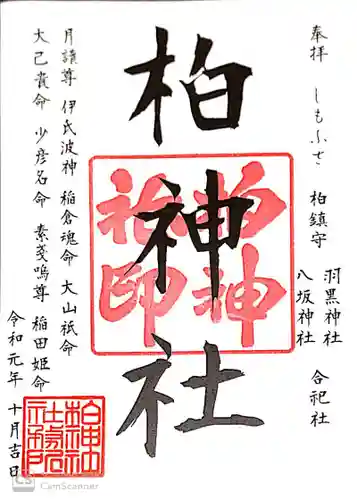 奉拝 しもふさ 柏鎮守
羽黒神社
八坂神社
合祀社
柏神社
柏神社印
月讀尊 伊氐波神 稲倉魂命 大山祇命
大己貴命 少彦名命 素戔嗚尊 稲田姫命
令和元年 十月吉日
CS CamScanner